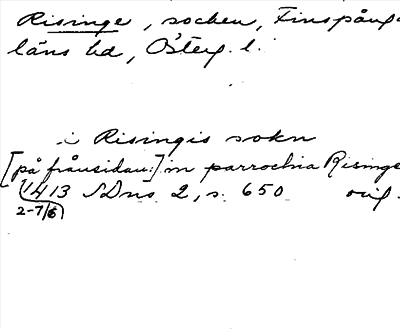 Risinge, socken, Finspång
läns hd, Österg. l.
i Risingis sokn
[på frånsidan:] in parrochia Risinge
1413 SDns 2, s. 650 orig.
2-7/6